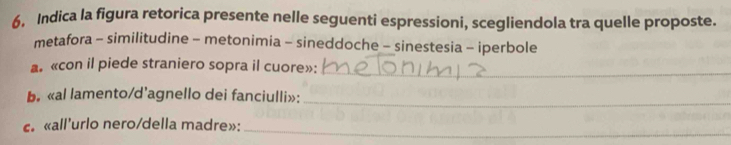 6. Indica la figura retorica presente nelle seguenti espressioni, scegliendola tra quelle proposte.
metafora – similitudine – metonimia – sineddoche – sinestesia – iperbole
a. «con il piede straniero sopra il cuore»: metonimia
b. «al lamento/d'agnello dei fanciulli»:
c. «all'urlo nero/della madre»: